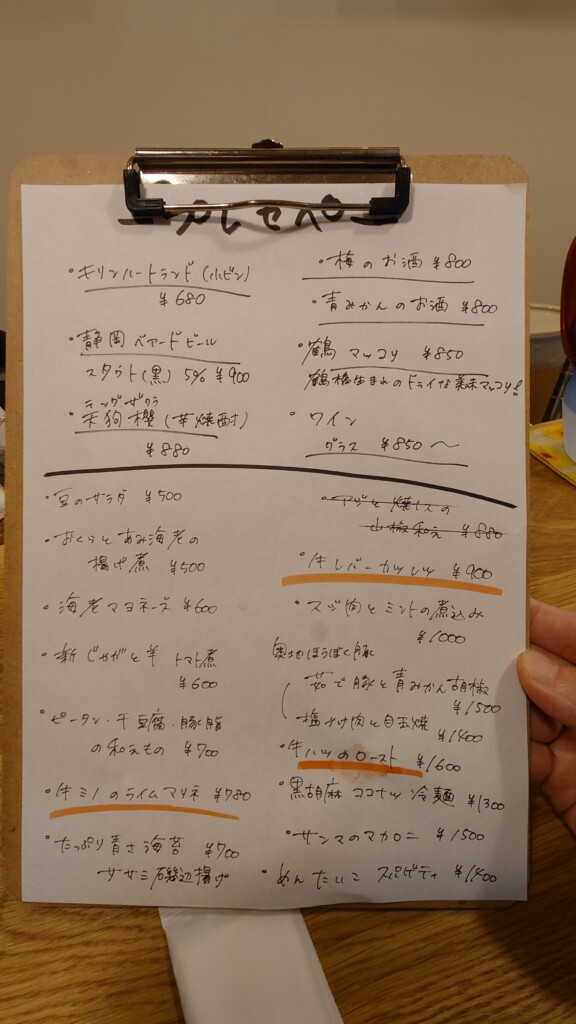 プレセペロ
・キリンハートランド(小ビン)
¥680
・静岡 ベアードビール
スタウト(黒) 5% ¥900
テングザクラ
・天狗櫻(芋焼酎)
¥880
・梅のお酒 ¥800
・青みかんのお酒 ¥800
・鶴 マッコリ ¥850
鶴橋生まれのドライな美味マッコリ!
・ワイン
グラス ¥850〜
・豆のサラダ ¥500
・おくらとあみ海老の
揚げ煮 ¥500
・海老マヨネーズ ¥600
・新じゃがと羊 トマト煮
¥600
・ピータン・干豆腐・豚脂
の和えもの ¥700
・牛ミノのライムマリネ ¥780
・たっぷり青さ海苔 ¥700
ササミ磯辺揚げ
・アジと焼ナスの
山椒和え ¥880
・牛レバーカツレツ ¥900
・スジ肉とミントの煮込み
¥1000
奥地ほうぼく豚
茹で豚と青みかん胡椒
¥1500
塩づけ肉と白玉焼
¥1400
・牛ハツのロースト ¥1600
・黒胡麻ココナツ冷麺 ¥1300
・サンマのマカロニ ¥1500
・めんたいこ スパゲティ ¥1400